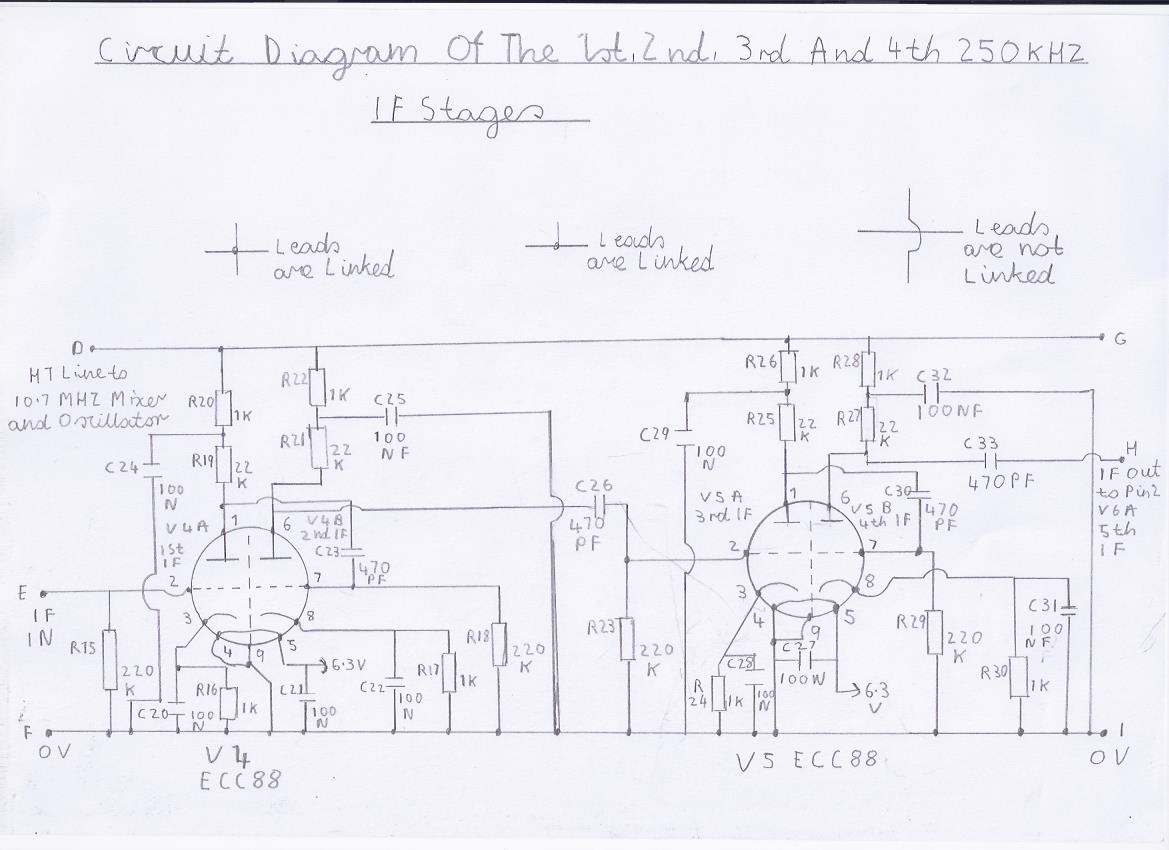 Circuit Diagram Of The 1st, 2nd, 3rd And 4th 250KHZ
IF Stages
Leads
are Linked
Leads
are Linked
Leads
are not
Linked
D
G
HT Line to
10.7 MHZ Mixer
and Oscillator
R20
1K
R22
1K
C25
100
NF
R21
22
K
R19
22
K
C24
100
N
V4A
1st
IF
1
6
V4B
2nd IF
C23
470
PF
2
7
3
8
4
9
5
E
IF
IN
R15
220
K
C20
100
N
R16
1K
C21
100
N
6.3V
C22
100
N
R17
1K
R18
220
K
F
0V
V4
ECC88
C26
470
PF
R23
220
K
R26
1K
R28
1K
C32
100NF
R25
22
K
R27
22
K
C29
100
N
C33
470PF
H
IF Out
to Pin2
V6A
5th
IF
V5A
3rd IF
1
6
V5B
4th IF
C30
470
PF
2
7
3
8
4
9
5
C27
100N
C28
100
N
R
24
1K
6.3
V
R29
220
K
R30
1K
C31
100
NF
I
0V
V5 ECC88